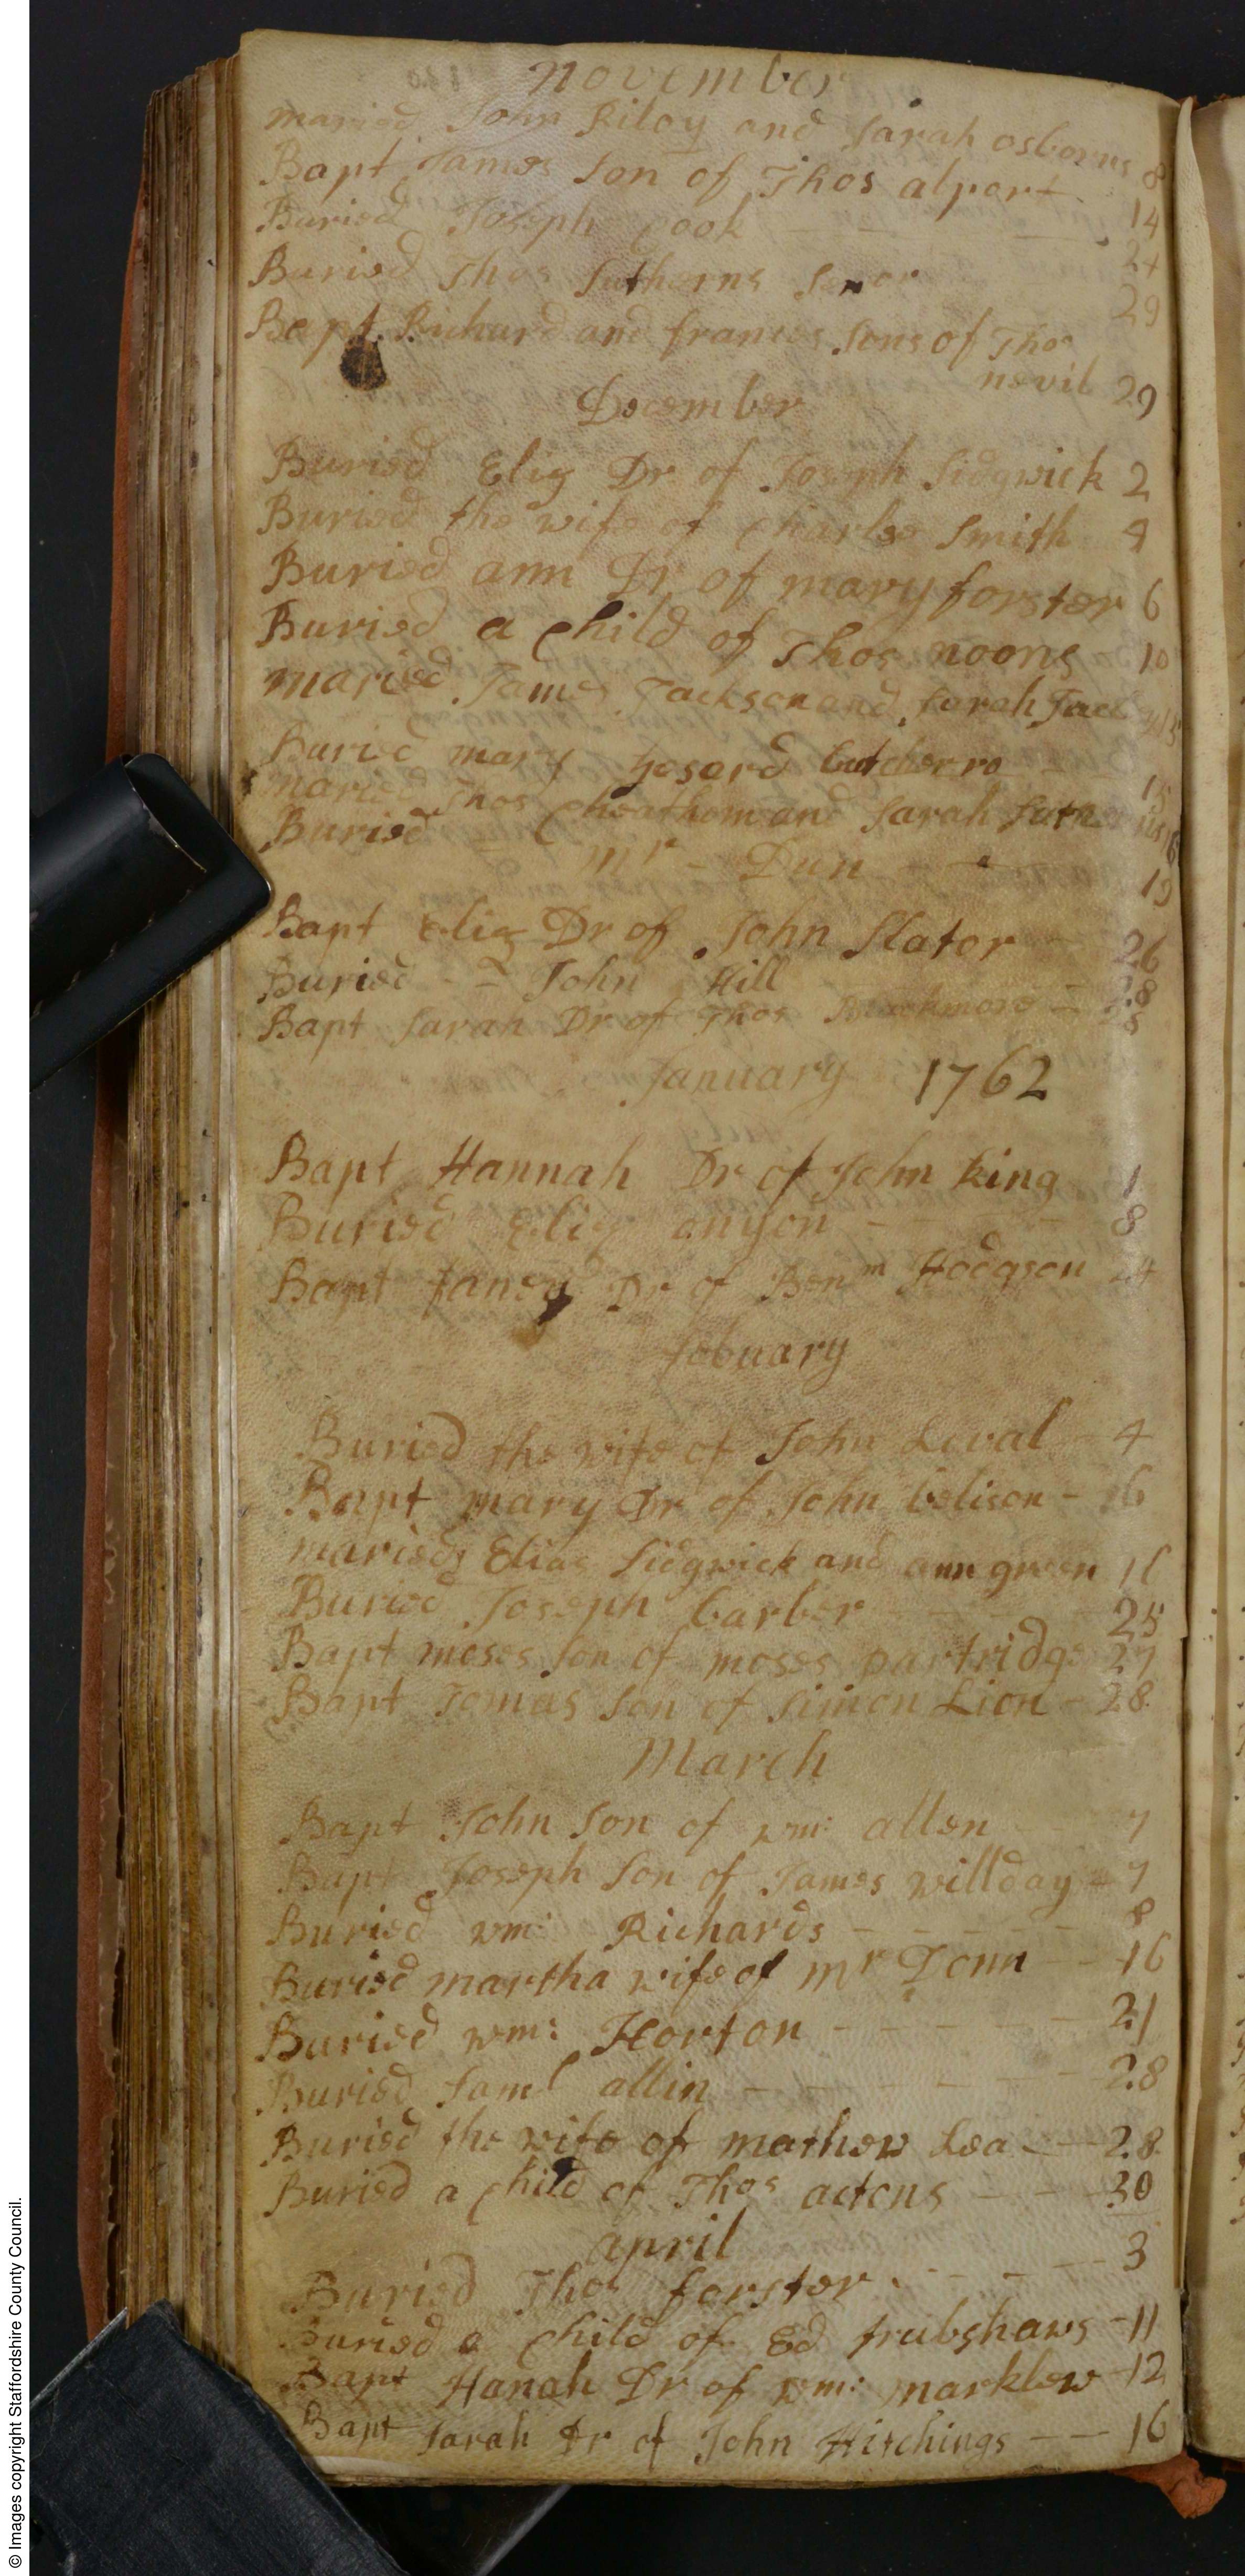 november
maried John Riley and Sarah osborns 8
Bapt James Son of Thos alport 14
Buried Joseph Cook - - - 24
Buried Thos Sutherns Senor 29
Bapt Richard and frances Sons of Thos
nevil 29
December
Buried Eliz Dr of Joseph Sidgwick 2
Buried the wife of Charles Smith 4
Buried ann Dr of mary forster 6
Buried a Child of Thos noons - 10
maried James Jackson and Sarah
Buried mary gosard - - 15
maried Thos Cheatham and Sarah
Buried - mr - Dun - - 19
Bapt Eliz Dr of John Slator - 26
Buried - - John Hill - 28
Bapt Sarah Dr of Thos Blackmore - 28
January 1762
Bapt Hannah Dr of John king 1
Buried Eliz onyon - - - - 8
Bapt Dr of Benm Hodgson 24
febuary
Buried the wife of John Leval - 4
Bapt mary Dr of John belison - 16
maried Elias Sidgwick and ann green 16
Buried Joseph barber - - - 25
Bapt moses Son of moses partridge 27
Bapt Tomas Son of Simon Lion - 28
March
Bapt John Son of wm: allen - - 7
Bapt Joseph Son of James willday - 7
Buried wm: Richards - - - - - 8
Buried martha wife of mr Donn - - 16
Buried wm: Horton - - - - - 21
Buried Saml allin - - - - - - 28
Buried the wife of mathew Lea - - 28
Buried a Child of Thos actons - - - 30
april
Buried Thos forster - - - - 3
Buried a Child of Ed frubshaws - 11
Bapt Hanah Dr of wm: marklew - 12
Bapt Sarah Dr of John Hitchings - - 16
© Images copyright Staffordshire County Council.